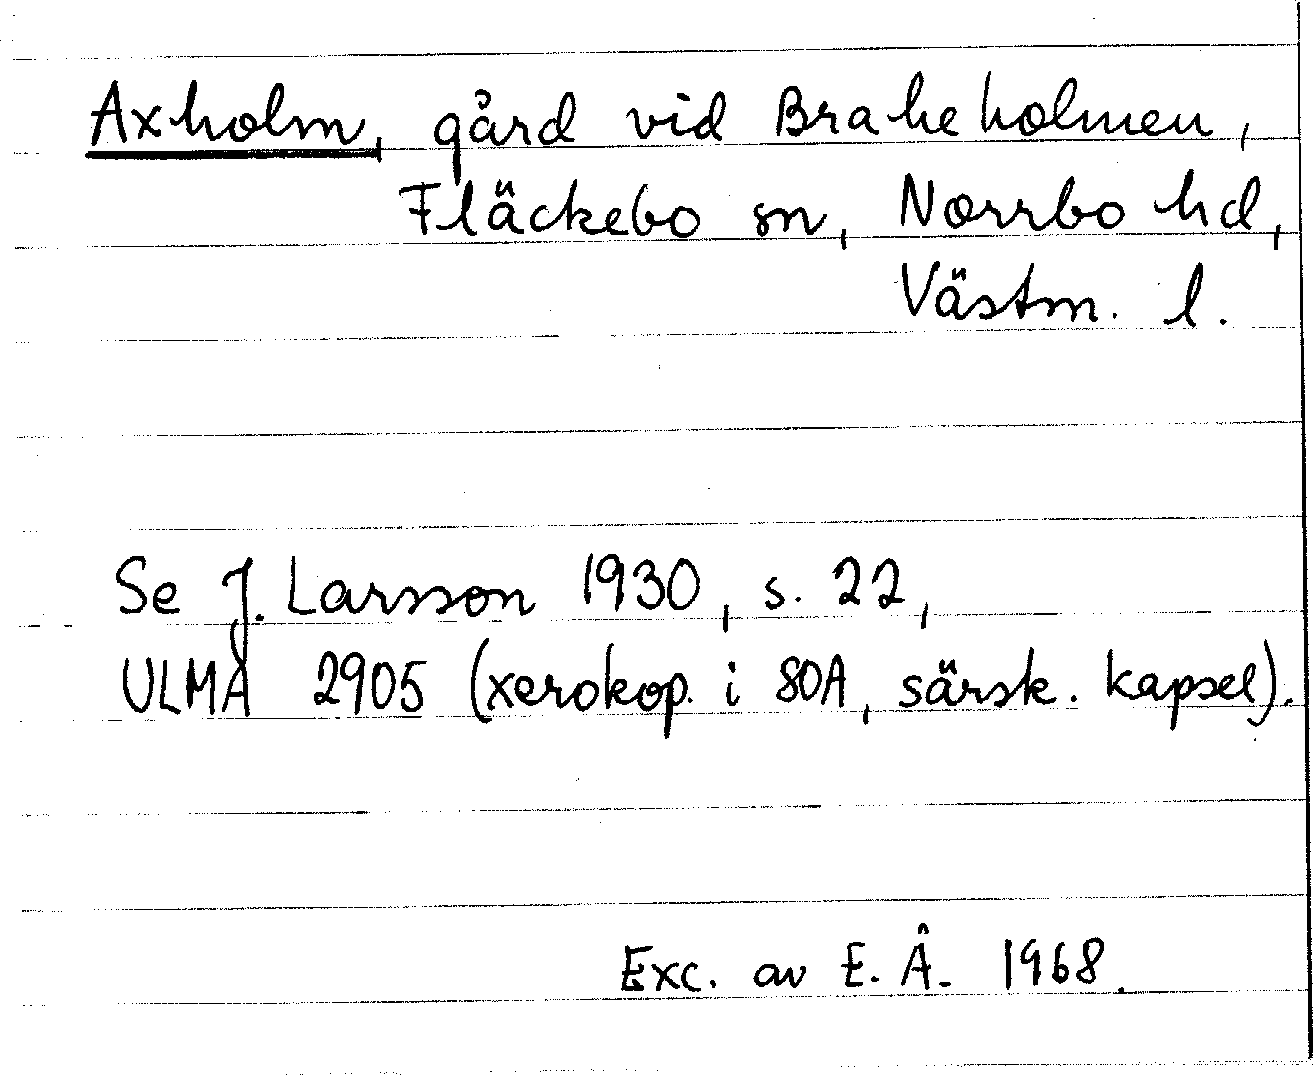 Axholm, gård vid Braheholmen,
Fläckebo sn, Norrbo hd,
Västm. l.
Se J. Larsson 1930, s. 22,
ULMA 2905 (xerokop. i SOA, särsk. kapsel).
Exc. av E. Å. 1968.